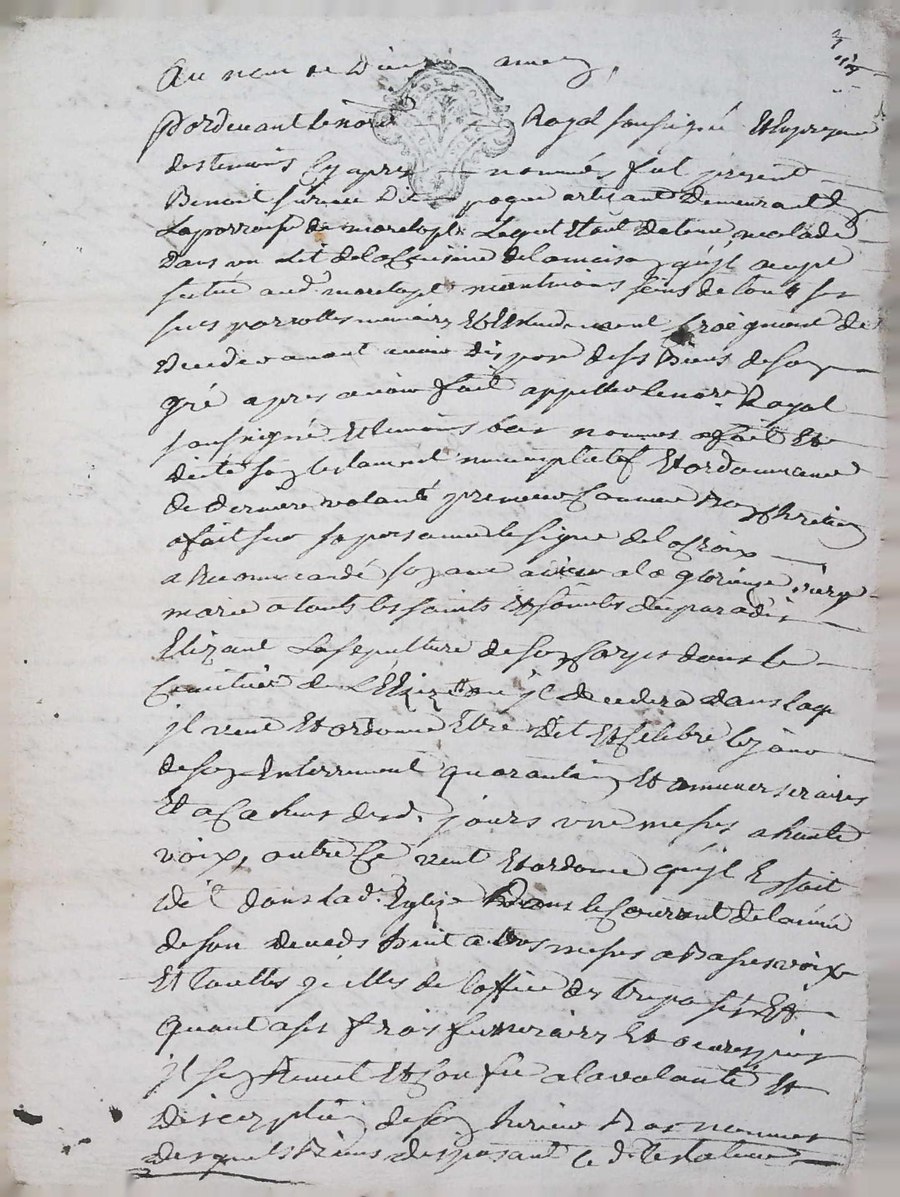 Au nom de Dieu amen,
Pardevant le no.re Royal soussigné Et en presence
des temoins Cy apres nommés fut present
Benoit dit artisant demeurant
La parroisse de Lequel Etant detenu malade
dans un Lit de la Cuisine de la maison qu'jl occupe
scitué aud. neantmoins sains de tous ses
sens parrolles memoire Et Entendement Craignant de
deceder avant avoir dispose de ses Biens de son
gré apres avoir fait appeller le no.re Royal
soussigné Et temoins bas nommés a fait Et
dicté son testament nuncupatif Et ordonnance
de derniere volanté premier Comme Bon Chretien
a fait sur sa personne le signe de la Croix
a Recommandé son ame a Dieu a la glorieuse vierge
marie a touts les saints Et saintes du paradis
Elizant La sepulture de son Corps dans le
Cimitiere de L'Eglize ou jl decedera dans laq.
jl veut Et ordonne Etre dit Et Celebré les jours
de son Enterrement quarantain Et anniversaires
Et a Cachuns desd. jours une messe a haute
voix, outre Ce veut Et ordonne qu'jl En soit
dans lad. Eglise dans le Courrant de l'année
de son deceds huit messes a Basses voix
Et touttes qu'elles de l'office des trepassés Et
Quant a ses frais funeraires Et
jl s'en Remet Et Confie a la volanté Et
discreption de son heritier Bas nommé
desquels Biens disposant Le d. Testateur